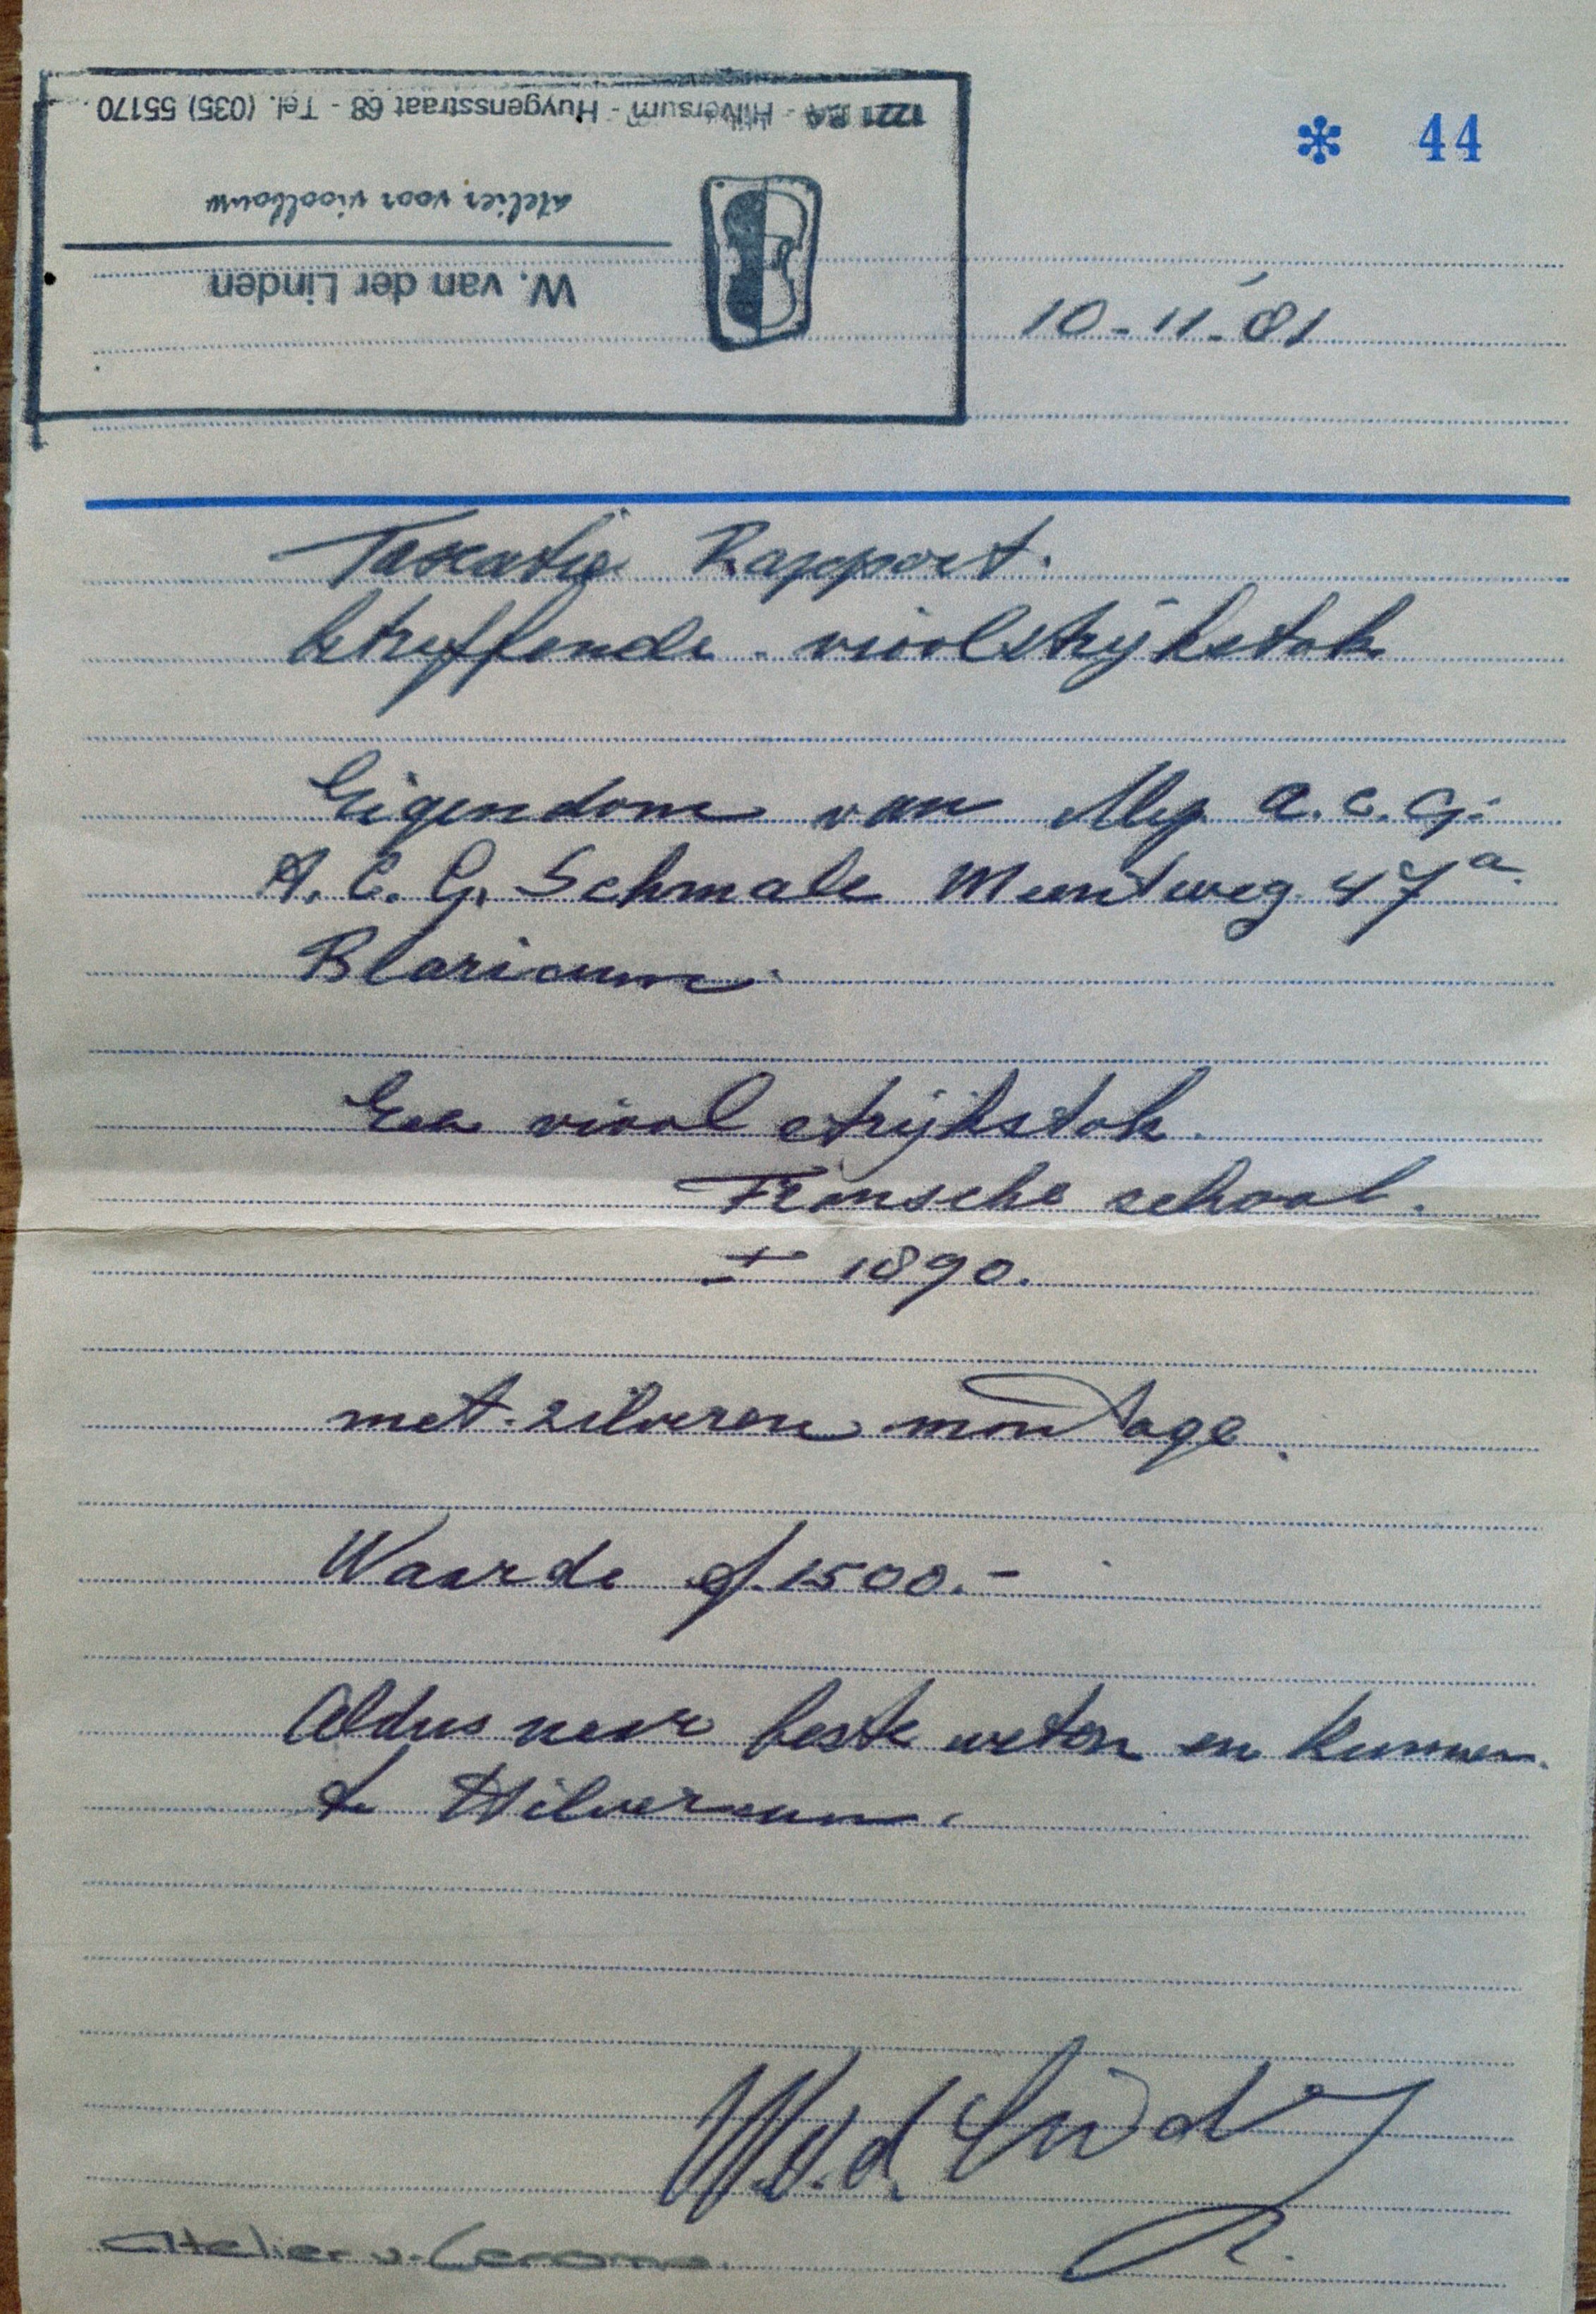 1221 BA - Hilversum - Huygensstraat 68 - Tel. (035) 55170
atelier voor vioolbouw
W. van der Linden
* 44
10-11-'81
Taxatie Rapport.
betreffende violstrijkstok
Eigendom van Mej. A.C.G.
A.C.G. Schmale Meentweg 47a.
Blaricum.
Een viool strijkstok.
Fransche school.
± 1890.
met zilveren montage.
Waarde f. 1500.-
Aldus naar beste weten en kunnen.
te Hilversum.
W.v.d. Linden
Atelier v.